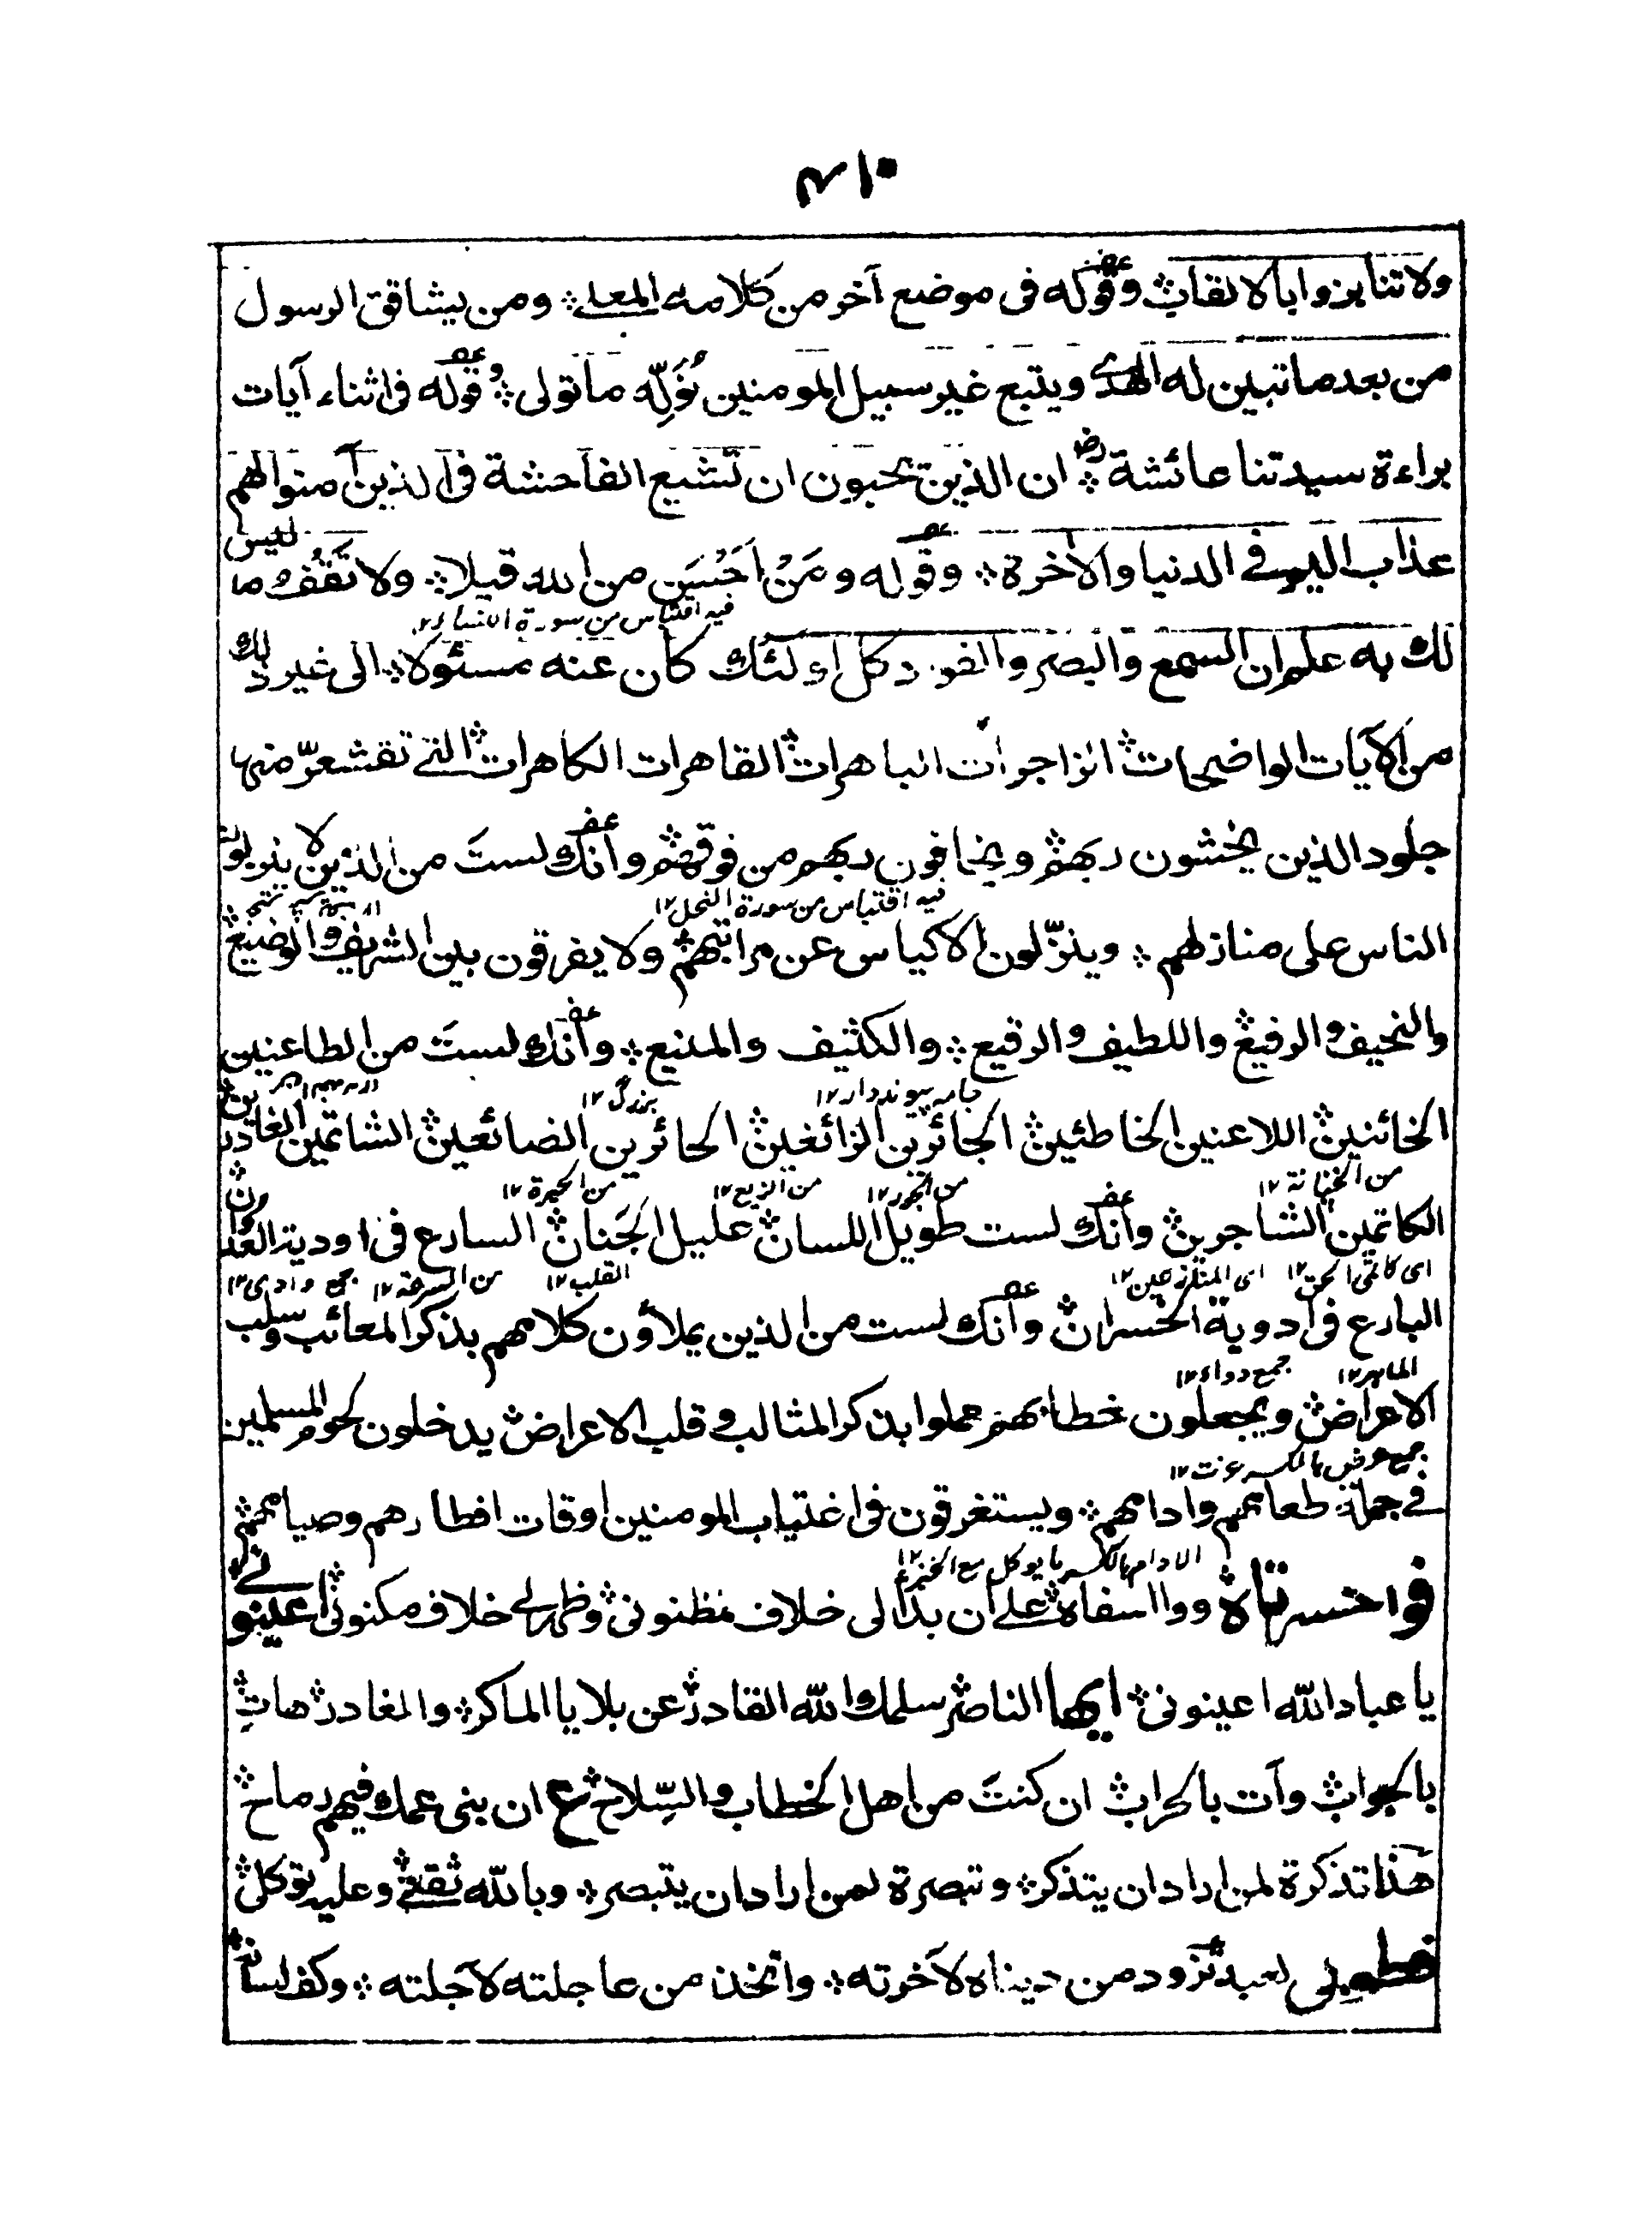 ٤١٠
ولا تنابزوا بالالقاب وقوله فى موضع آخر من كلامه المعلے ومن يشاقق الرسول
من بعد ما تبين له الهدے ويتبع غير سبيل المومنين نُوَلِّه ما تولى وقوله فى اثناء آيات
براءة سيدتنا عائشة رض ان الذين يحبون ان تشيع الفاحشة فى الذين آمنوا لهم
عذاب اليم فے الدنيا والآخرة وقوله ومَنْ اَحْسَن من الله قيلا ولا تَقْفُ ما ليس
فيه اقتباس من سورة النساء ١٢
لك به علم ان السمع والبصر والفواد كل اولئك كان عنه مسئولا الى غير ذلك
من الآيات الواضحات الزاجرات الباهرات القاهرات الكاهرات التے تقشعرّ منها
جلود الذين يخشون ربهم ويخافون ربهم من فوقهم وانك لستَ من الذين لا ينزلون
فيه اقتباس من سورة النحل ١٢
الناس على منازلهم وينزّلون الاكياس عن مراتبهم ولا يفرقون بين الشريف والوضيع
والنحيف والرفيع واللطيف والرقيع والكثيف والمنيع وانك لستَ من الطاعنين
جامه پيونددار ١٢ بزرگ ١٢
الخائنين اللاعنين الخاطئين الجائرين الزائغين الحائرين الضائعين الشاتمين الغادرين
من الخيانة ١٢ من الجور ١٢ من الزيغ ١٢ من الحيرة ١٢
الكاتمين الشاجرين وانك لست طويل اللسان عليل الجَنان السارع فى اودية العدوان
اى كاتمى الحق ١٢ اى المتنازعين ١٢ القلب ١٢ من السرعة ١٢ جمع وادى ١٢
البارع فى ادوية الخسران وانك لست من الذين يملأون كلامهم بذكر المعائب وسلب
الماهر ١٢ جمع دواء ١٢
الاعراض ويجعلون خطابهم مملوا بذكر المثالب وقلب الاعراض يدخلون لحوم المسلمين
جمع عرض بالكسر عزت ١٢
فے جملة طعامهم وادامهم ويستغرقون فى اغتياب المومنين اوقات افطارهم وصيامهم
الادام بالكسر ما يوكل مع الخبز ١٢
فواحسرتاه ووااسفاه علے ان بدا لى خلاف مظنونى وظهر لے خلاف مكنونى اعينونے
يا عباد الله اعينونى ايها الناصر سلمك الله القادر عن بلايا الماكر والغادر هاتِ
بالجواب وآت بالحراب ان كنتَ من اهل الخطاب والسِّلاح ع ان بنى عمك فيهم رماح
هذا تذكرة لمن اراد ان يتذكر وتبصرة لمن اراد ان يتبصر وبالله ثقتے وعليه توكلى
فطوبى لعبد تزود من ديناه لآخرته واتخذ من عاجلته لآجلته وكف لسانه